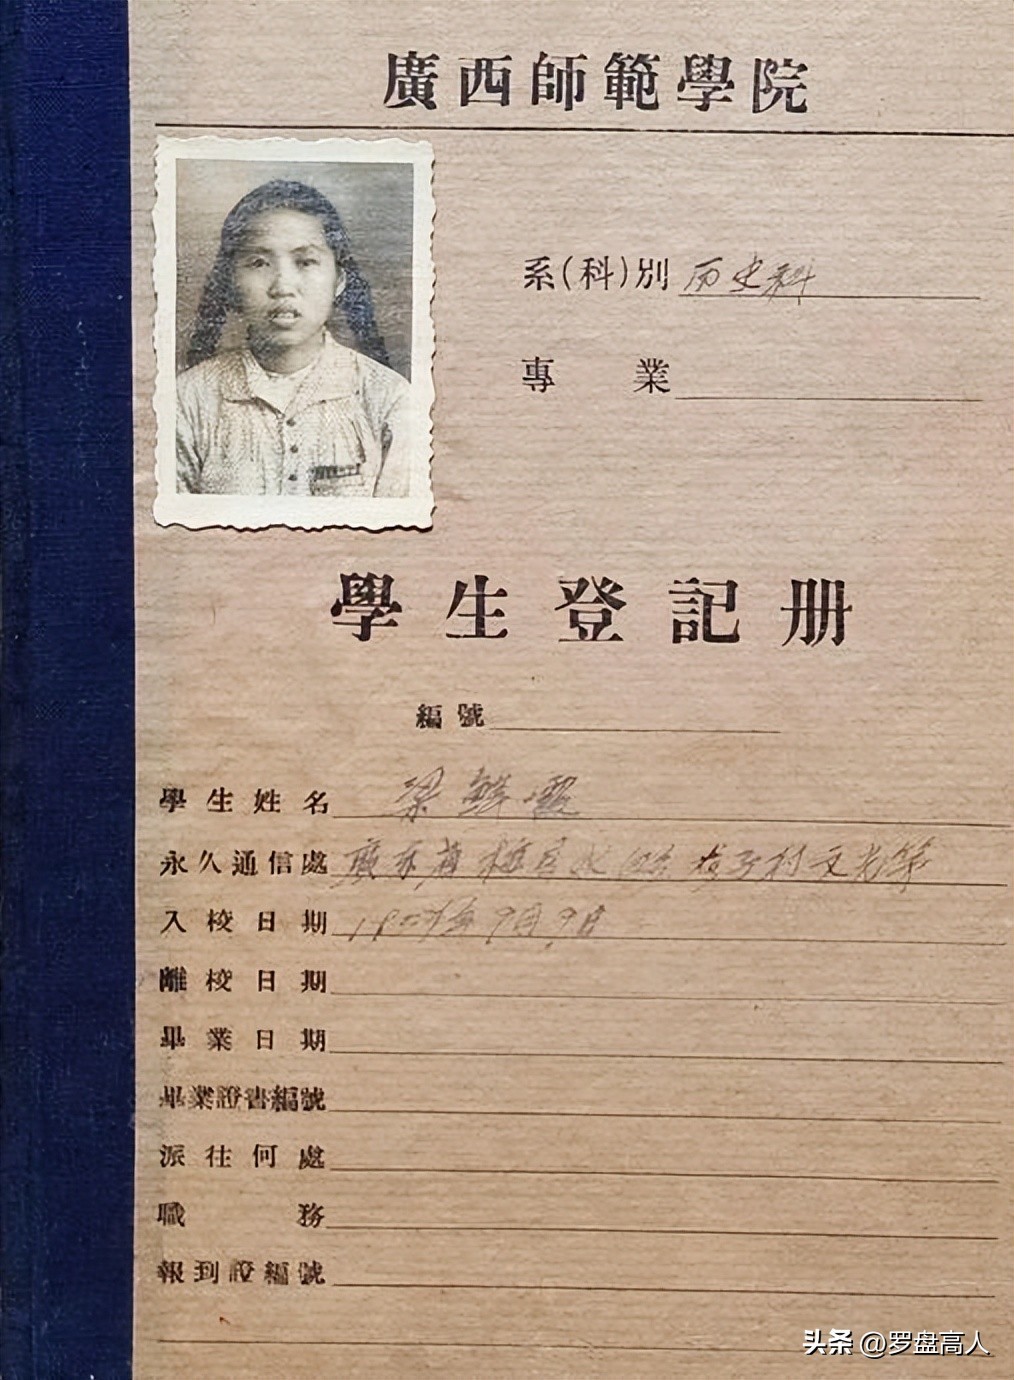 廣西師範學院
系(科)別 历史科
專業
學生登記册
編號
學生姓名 梁
永久通信處 廣东省 村文光第
入校日期 年9月9日
離校日期
畢業日期
畢業證書編號
派往何處
職務
報到證編號
头条 @罗盘高人